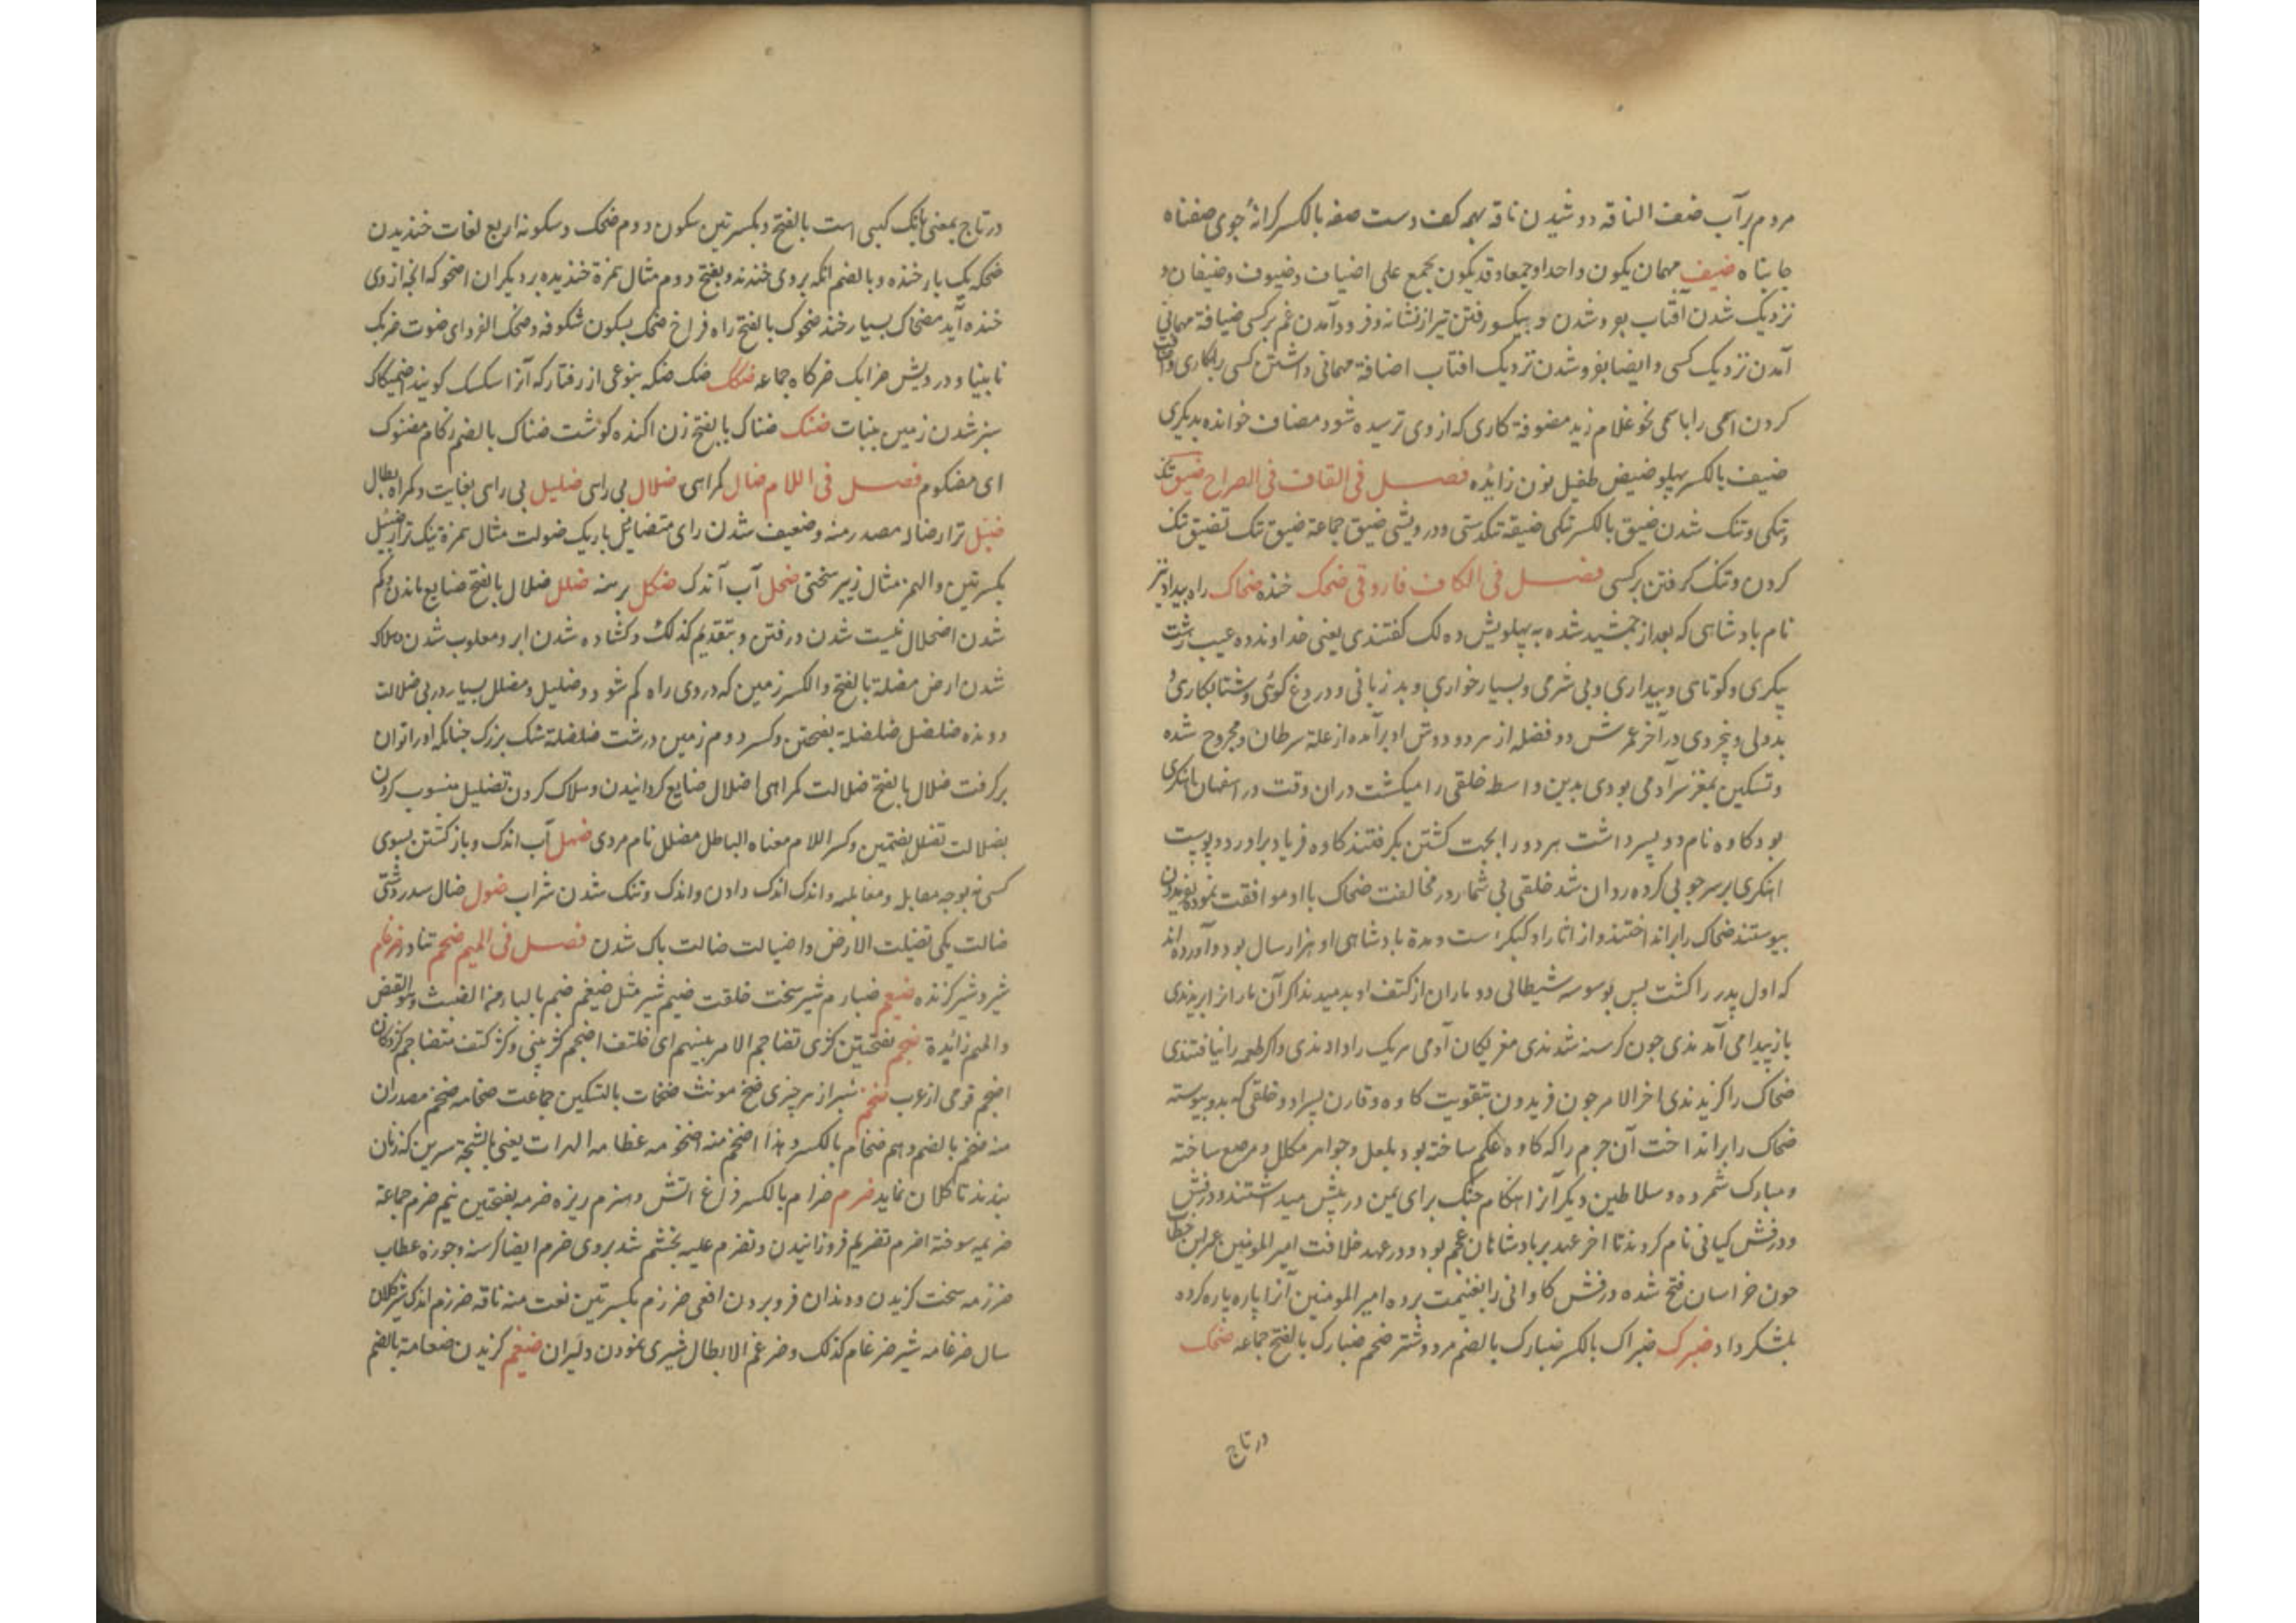 مردم برآب ضف الناقه دوشیدن ناقه بهمه کف دست صفه بالکسر کرانهٔ جوی صفناه
جابناه ضیف مهمان یکون واحدا وجمعا وقد یکون یجمع علی اضیاف وضیوف وضیفان و
نزدیک شدن آفتاب بفروشدن و بیکسو رفتن تیر از نشانه وفرود آمدن غم برکسی ضیافة مهمانی
آمدن نزدیک کسی وایضا بفروشدن نزدیک افتاب اضافة مهمانی داشتن کسی را
کردن اسمی را باسمی نحو غلام زید مضوفة کاری که از وی ترسیده شود مضاف خوانده بدیکری
ضیف بالکسر پهلو ضیفن طفیل نون زائده فصل فی القاف فی الصراح ضیق تنک
وتنکی وتنک شدن ضیق بالکسر تنکی ضیقه تنکدستی ودرویشی ضیق جماعة ضیق تنک تضیق تنک
کردن وتنک کرفتن برکسی فصل فی الکاف فاروقی ضحک خنده ضحاک راه پیدا ونیز
نام بادشاهی که بعد از جمشید شده به پهلویش ده لک کفتندی یعنی خداوند ده عیب زشت
پیکری وکوتاهی وبیداری وبی شرمی وبسیار خواری وبد زبانی ودروغ کوئی وشتابکاری و
بددلی وبیخردی در آخر عمرش دو فضله از سر دو دوش او برآمده از علة سرطان ومجروح شده
وتسکین بمغز سر آدمی بودی بدین واسطه خلقی را میکشت دران وقت در اسفهان اهنکری
بود کاوه نام دو پسر داشت هر دو را بجهت کشتن بکرفتند کاوه فریاد براورد وپوست
اهنکری بر سر چوبی کرده روان شد خلقی بی شمار در مخالفت ضحاک با او موافقت نموده بفریدون
پیوستند ضحاک را برانداختند واز اثار او کبکرا است ومدة بادشاهی او هزار سال بود وآورده اند
که اول پدر را کشت پس بوسوسه شیطانی دو ماران از کتف او بدمیدند اکر آن ماران را بریدندی
باز پیدا می آمدندی جون کرسنه شدندی مغز یکان آدمی هریک را دادندی واکر طعمه را نیافتندی
ضحاک را کزیدندی اخر الامر جون فریدون بتقویت کاوه وقارن پسر او وخلقی که بدو پیوسته
ضحاک را برانداخت آن جرم را که کاوه علم ساخته بود بلعل وجواهر مکلل ومرصع ساخته
ومبارک شمرده وسلاطین دیکر آنرا هنکام جنک برای یمن در پیش میداشتند ودرفش
ودرفش کیانی نام کردند تا اخر عهد بر بادشاهان عجم بود ودر عهد خلافت امیر المومنین عمر بن خطاب
جون خراسان فتح شده درفش کاوانی را بغنیمت برده امیر المومنین آنرا پاره پاره کرده
بلشکر داد ضبرک ضبراک بالکسر ضبارک بالضم مرد وشتر ضخم ضبارک بالفتح جماعه ضحک
در تاج
در تاج بمعنی بانک کپی است بالفتح وبکسرتین سکون دوم ضحک وسکونه اربع لغات خندیدن
ضحکه یک بار خنده وبالضم انکه بروی خندند وبفتح دوم مثال همزة خندیده بر دیکران اضحوکه انچه از وی
خنده آید مضحاک بسیار خند ضحوک بالفتح راه فراخ ضحک بسکون شکوفه وضحک القرد ای صوت ضریک
نابینا ودرویش ضرایک ضرکاه جماعه ضکک ضک ضکضکه بنوعی از رفتار که آنرا سکسک کویند اضمیکاک
سبز شدن زمین بنبات ضنک ضناک بالفتح زن اکنده کوشت ضناک بالضم زکام مضنوک
ای مضکوم فصل فی اللام ضال کمراهی ضلال بی راهی ضلیل بی راهی بغایت وکمراه بطال
ضئیل نزار ضاله مصدر منه وضعیف شدن رای متضائل باریک ضولت مثال همزة نیک نزار ضئبل
بکسرتین والهمز مثال زیبر سختی ضحل آب اندک ضکل برهنه ضلل ضلال بالفتح ضایع ماندن وکم
شدن اضمحلال نیست شدن ورفتن وبتقدیم کذلک وکشاده شدن ابر ومغلوب شدن وهلاک
شدن ارض مضلة بالفتح والکسر زمین که در وی راه کم شود وضلیل ومضلل بسیار در بی ضلالت
دونده ضلضل ضلضلة بفتحتین وکسر دوم زمین درشت ضلضلة سنک بزرک جنانکه اورا توان
برکرفت ضلال بالفتح ضلالت کمراهی اضلال ضایع کردانیدن وهلاک کردن تضلیل منسوب کردن
بضلالت تضلل بضمتین وکسر اللام معناه الباطل مضلل نام مردی ضهل آب اندک وباز کشتن بسوی
کسی نه بوجه مقابله ومغالبه واندک اندک دادن واندک وتنک شدن شراب ضول ضال سدر دشتی
ضالت یکی تضیلت الارض واضیالت ضالت ناک شدن فصل فی المیم ضخم تناور ضرغام
شیر وشیر کزنده ضیغم ضبارم شیر سخت خلقت ضیم شیر مثل ضیغم ضبم بالبا من الضبث وهو القبض
والمیم زائدة ضجم بفتحتین کژی تضاجم الامر بینهم ای اختلف اضجم کژ بینی وکژ کتف متضاجم کژ دهان
اضجم قومی از عرب ضخم سبر از هر چیزی ضخمة مونث ضخمات بالتسکین جماعت ضخامه ضخم مصدران
منه ضخم بالضم وهم ضخام بالکسر وهذا اضخم منه اضخومه عظامه المرات یعنی بالشچة سرین که زنان
بندند تا کلان نماید ضرم ضرام بالکسر فراغ اتش وهیزم ریزه ضرمه بفتحتین نیم ضرم جماعة
ضریمه سوفته اضرم تضریم فروزانیدن وتضرم علیه بخشم شد بروی ضرم ایضا کرسنه وجوزه عطاب
ضرزمه سخت کزیدن ودندان فرو بردن افعی ضرزم بکسرتین نعت منه ناقه ضرزم اندک شیر کلان
سال ضرغامه شیر ضرغام کذلک وضرغم الابطال شیری نمودن دلیران ضیغم کزیدن ضغامة بالضم